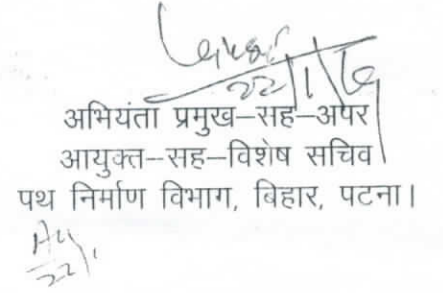 22/1/16
अभियंता प्रमुख-सह-अपर
आयुक्त-सह-विशेष सचिव
पथ निर्माण विभाग, बिहार, पटना।
22/1